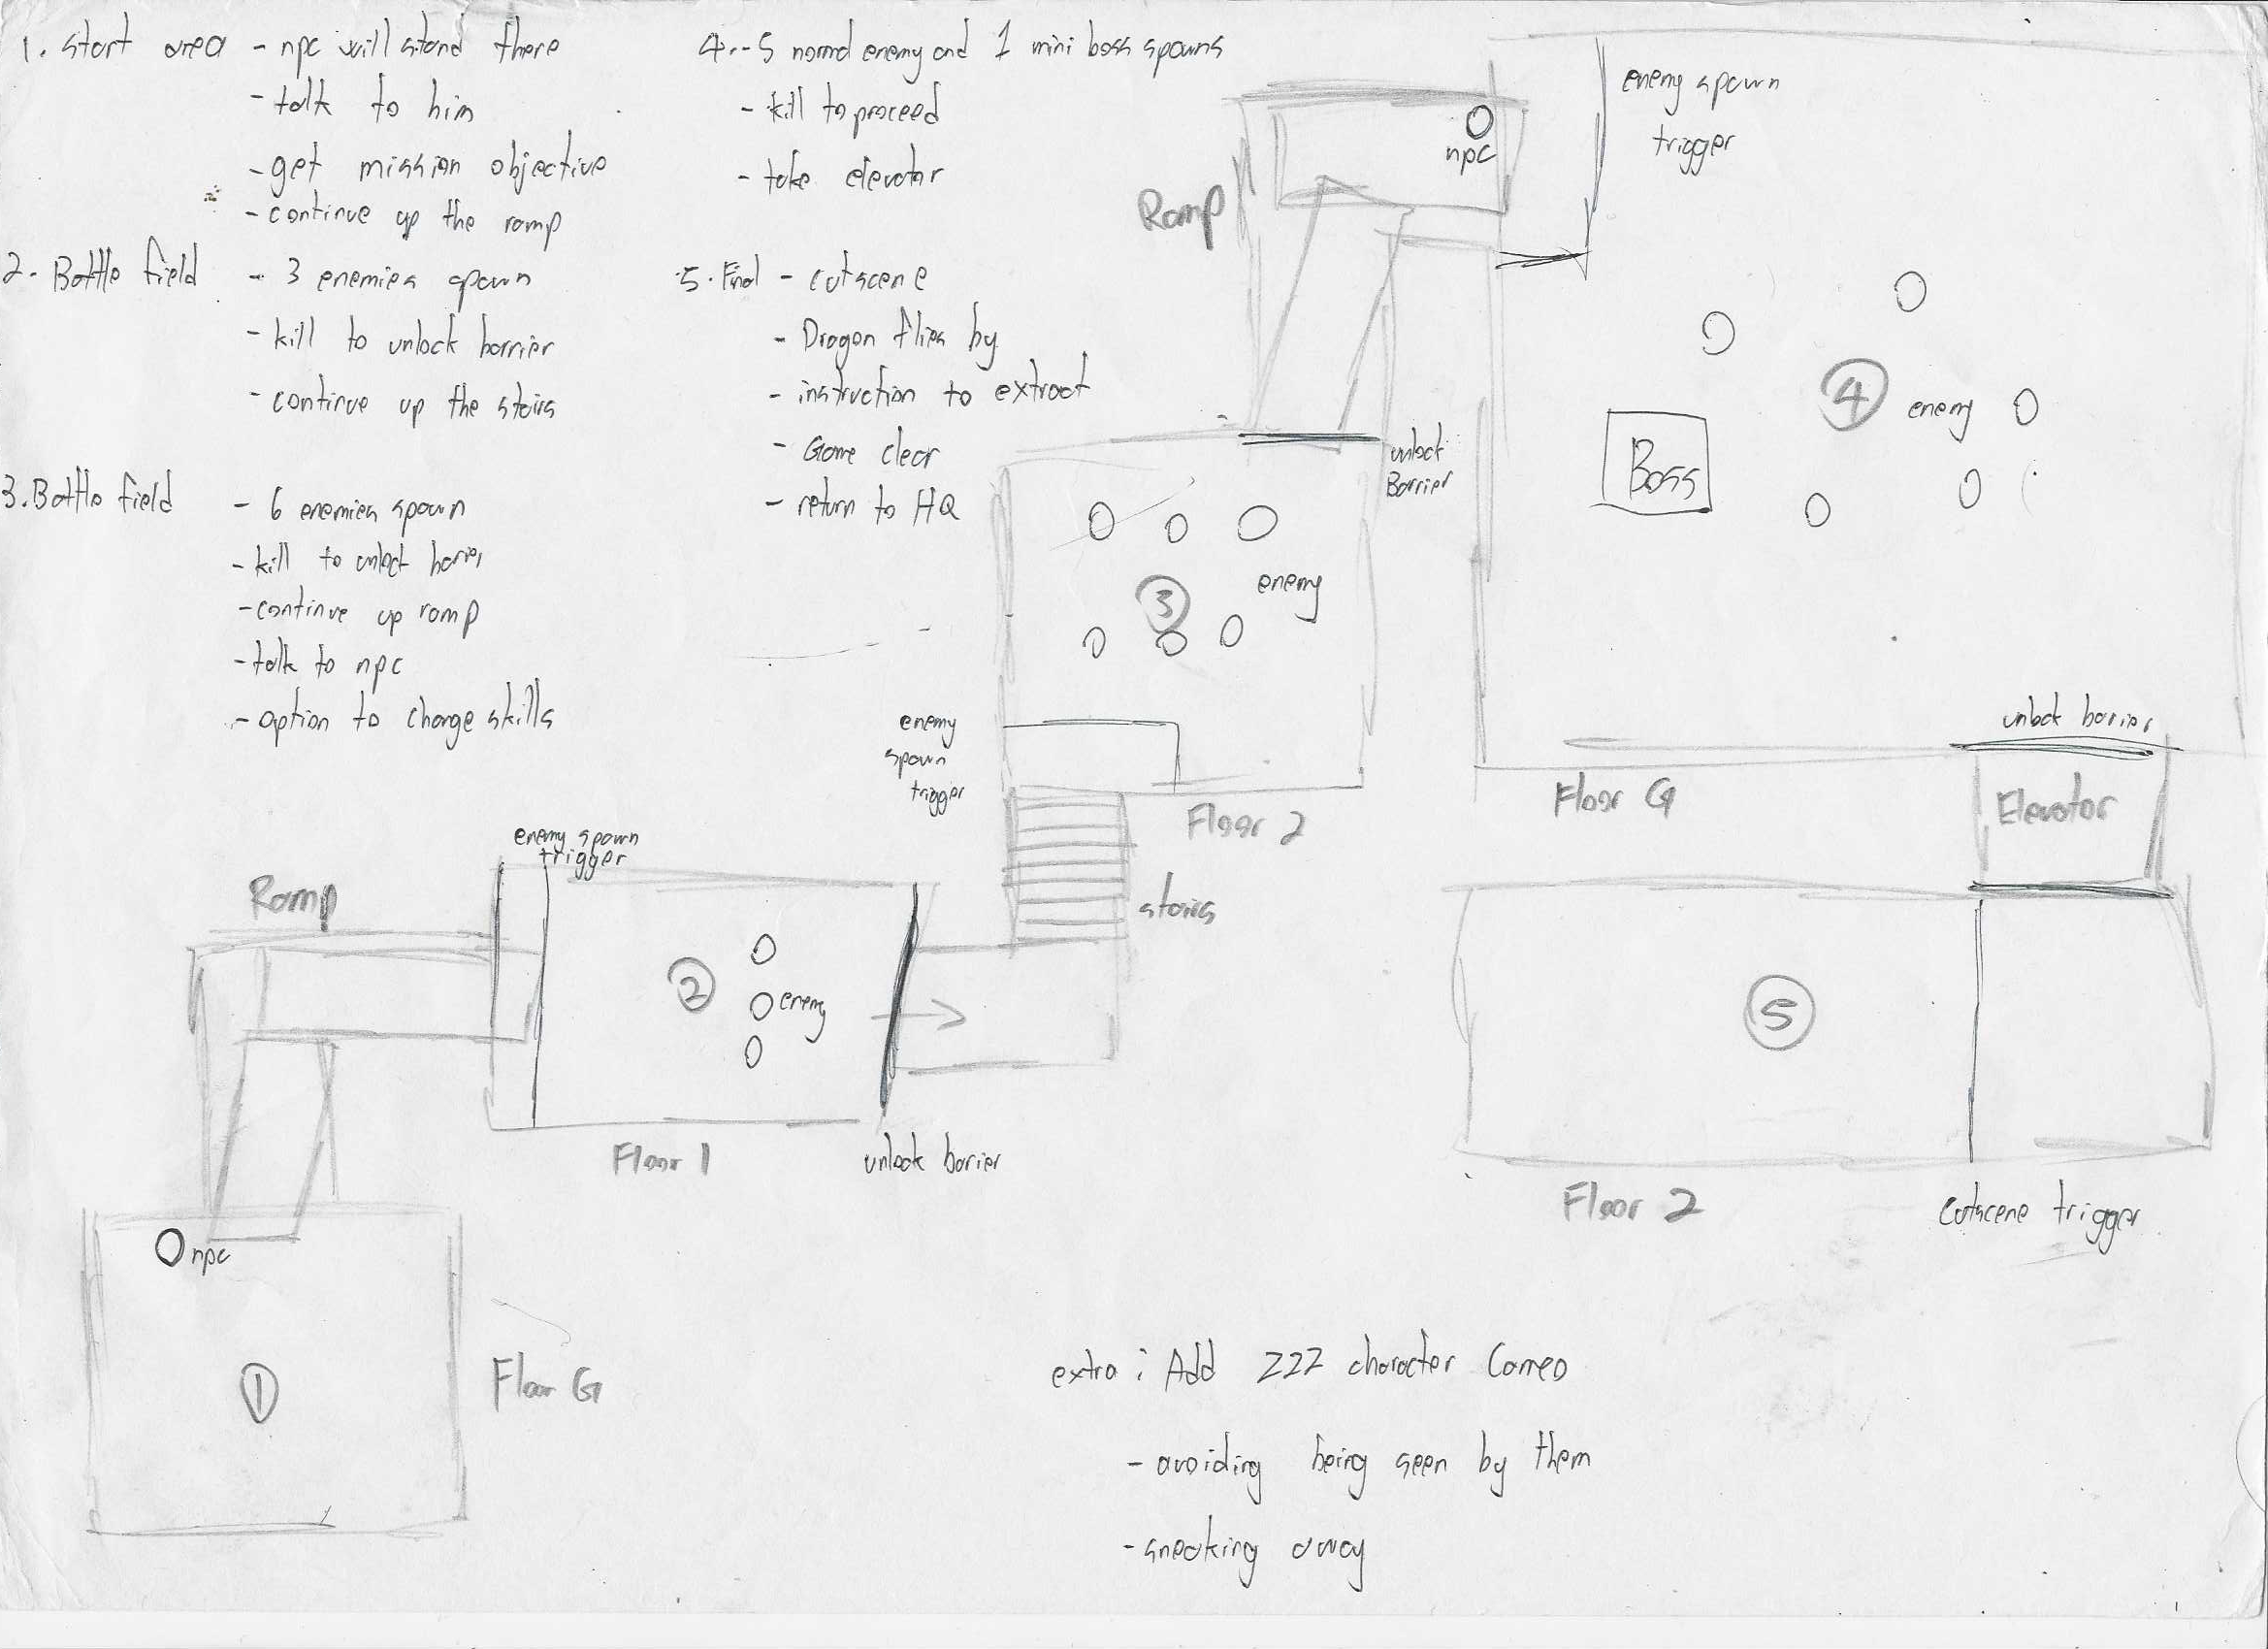 1. Start area - npc will stand there
- talk to him
- get mission objective
- continue up the ramp
2. Battle field - 3 enemies spawn
- kill to unlock barrier
- continue up the stairs
3. Battle field - 6 enemies spawn
- kill to unlock barrier
- continue up ramp
- talk to npc
- option to change skills
4. - 5 normal enemy and 1 mini boss spawns
- kill to proceed
- take elevator
5. Final - cutscene
- Dragon flies by
- instruction to extract
- Game clear
- return to HQ
Ramp
npc
enemy spawn
trigger
4
enemy
Boss
unlock
Barrier
3
enemy
enemy
spawn
trigger
Floor 2
stairs
unlock barrier
Floor G
Elevator
enemy spawn
trigger
Ramp
2
enemy
Floor 1
unlock barrier
5
Floor 2
cutscene trigger
npc
1
Floor G
extra : Add ZZZ character Cameo
- avoiding being seen by them
- sneaking away